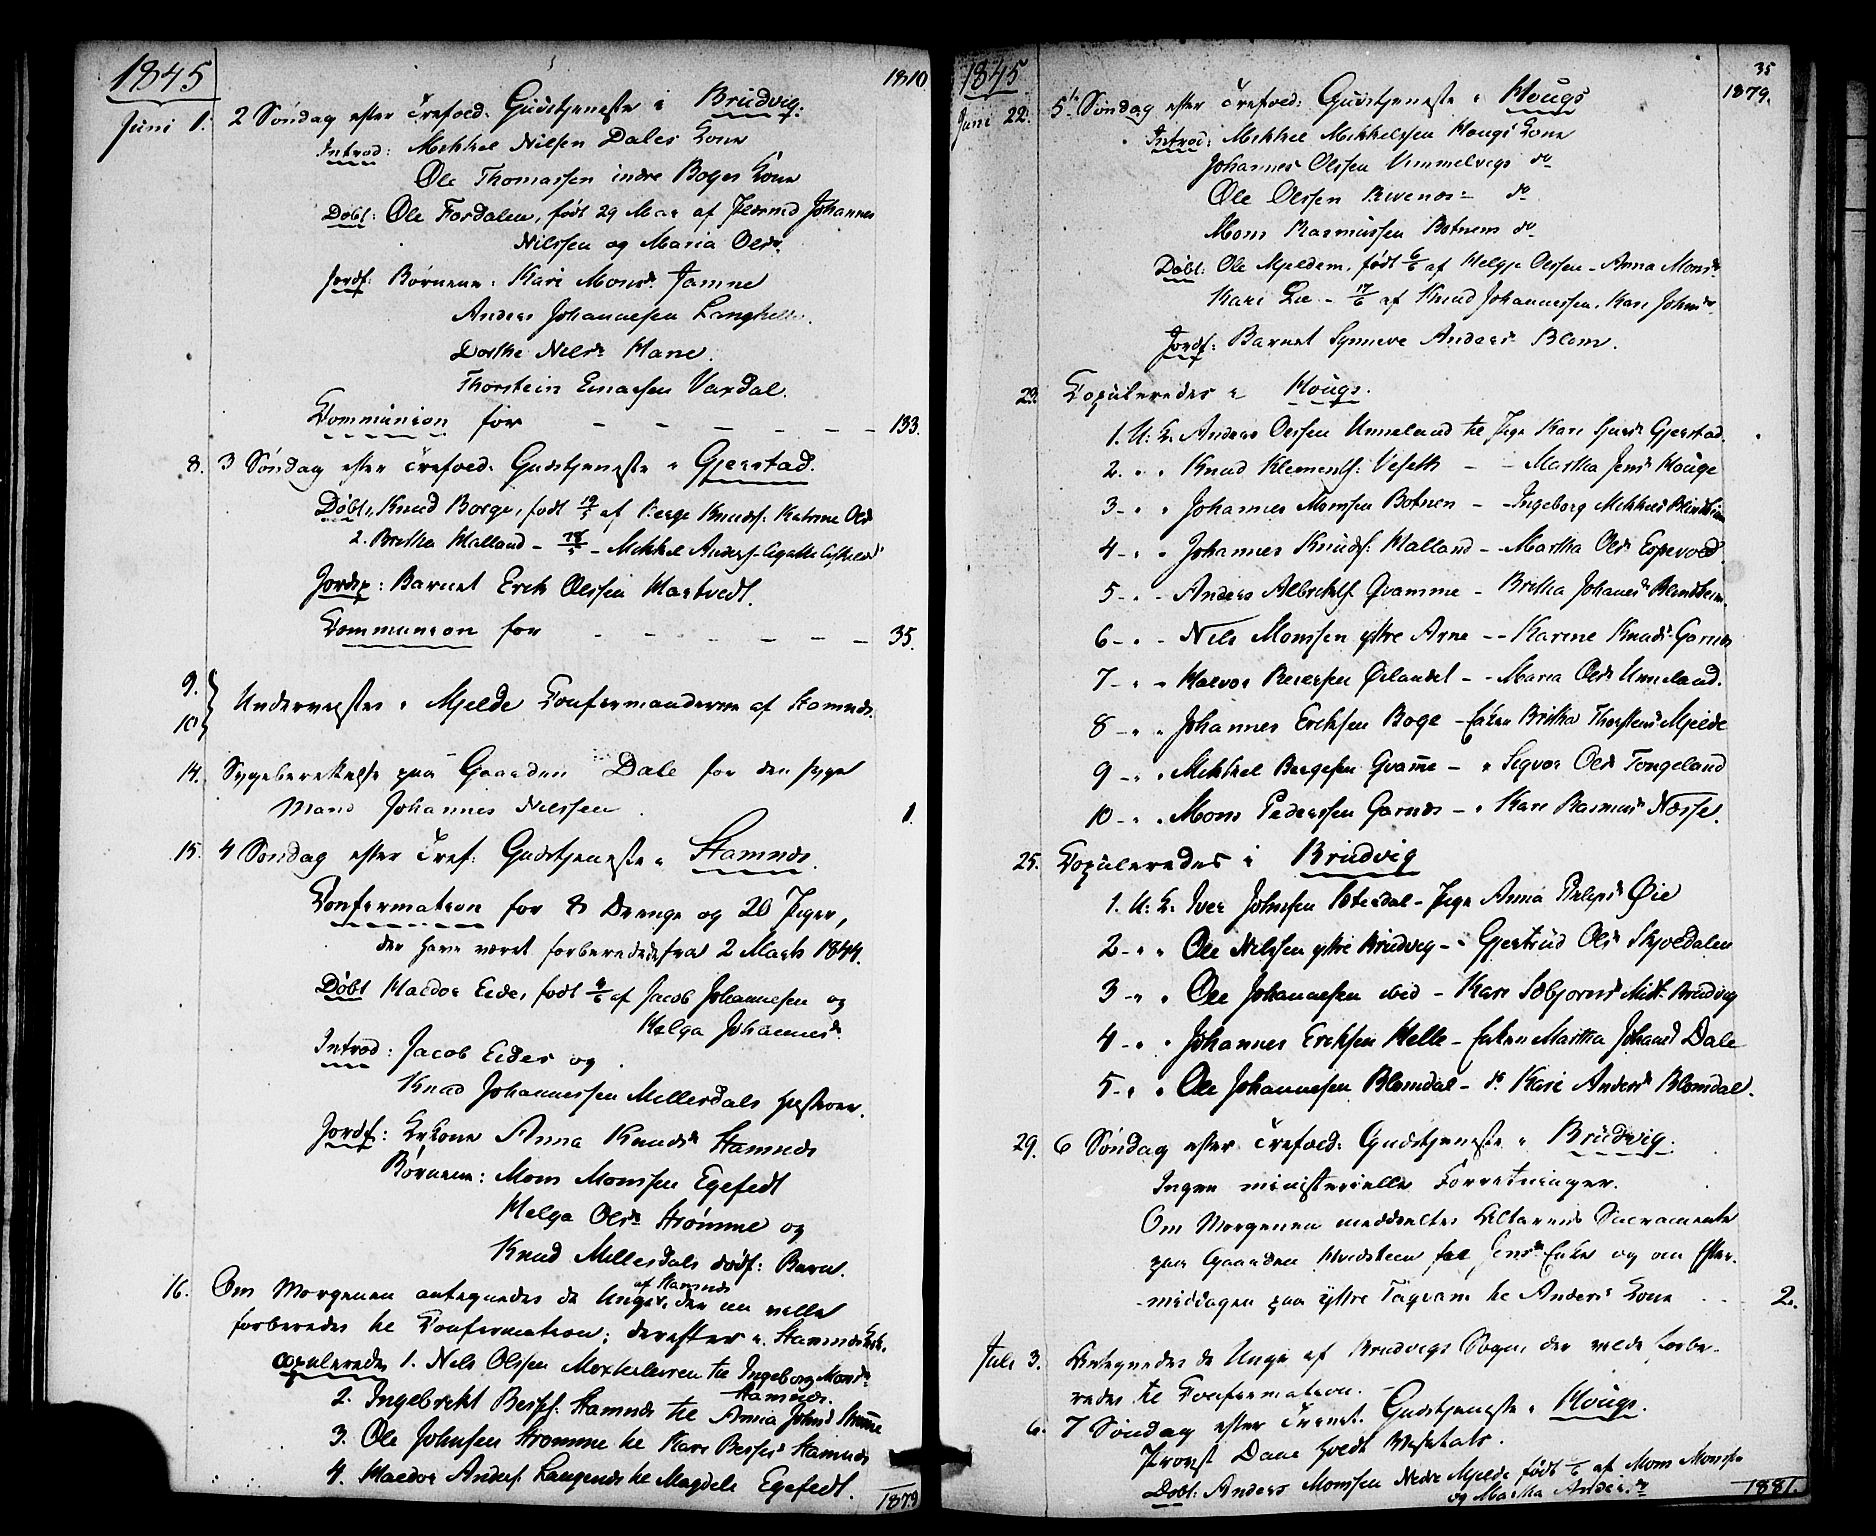 1845
1810
Juni 1. 2 Søndag efter Trefold. Gudstjeneste i Brudvig.
Introd: Mikkel Nilsen Dales Kone
Ole Thomassen indre Boges Kone
Døbt: Ole Fosdalen, født 29 Mai af Johannes
Nilssen og Maria Olsd.
Jordf: Børnene: Kari Monsd. Jamne
Anders Johannesen Langhelle.
Dorthe Nilsd. Hane.
Thorstein Einarsen Vaxdal.
Communion for - - - - - - 133.
8. 3 Søndag efter Trefold. Gudstjeneste i Gjerstad.
Døbt: Knud Borge, født 19/5 af Berge Knuds: Katrine Olsd
2. Britha Halland - 18/5 - Mikkel Anders. Agatha
Jordf: Barnet Erik Olssen Hartvedt.
Communion for - - - - - - 35.
9.
10. Underviistes i Mjelde Confirmanderne af Stamnes.
14. Sygeberettelse paa Gaarden Dale for den syge
Mand Johannes Nilssen. 1.
15. 4 Søndag efter Tref: Gudstjeneste i Stamnes.
Confirmation for 8 Drenge og 20 Piger,
der have været forberedede fra 2 Marts 1844.
Døbt Haldor Eide, født 9/6 af Jacob Johannesen og
Helga Johannesd.
Introd: Jacob Eides og
Knud Johannessen Millesdals Hustruer.
Jordf: Kone Anna Knudsd. Stamnes
Børnene: Mons Monssen Egefedt
Helga Olsd. Strømme og
Knud Millesdals dødf: Barn.
16. Om Morgenen antegnedes de Unge af Stamnes, der nu ville
forberedes til Confirmation; derefter i Stamnes Kirke.
copuleredes 1. Nils Olssen til Ingeborg Monsd.
Stamnes.
2. Ingebrekt Stamnes til Anna Johnsd Strømme
3. Ole Johnsen Strømme til Kari Stamnes
4. Haldor Anders. til Magdele Egefedt.
1879
1845
35
1879.
Juni 22. 5te Søndag efter Trefold: Gudstjeneste i Hougs
Introd: Mikkel Mikkelssen Hougs Kone
Johannes Olssen Vimmelvigs do
Ole Olssen Revenes do
Mons Rasmussen Botnens do
Døbt: Ole Mjeldem, født 6/6 af Helgje Olssen - Anna Monsd.
Kari Lie - 17/6 af Knud Johannessen, Kari Johnsd.
Jordf: Barnet Synneve Andersd. Blom.
23. Copuleredes i Hougs.
1. U: K: Anders Olssen Unneland til Pige Kari Gjerstad.
2. " " Knud Klements: Veseth - - Martha Jensd Houge
3 - " " Johannes Monssen Botnen - - Ingeborg Mikkelsd
4 - " " Johannes Knuds: Halland - - Martha Olsd Espevold
5 - " - Anders Albrekts. Qvamme - Britha Johanesd
6 - " - Nils Monssen ytre Arne - - Karine Knudsd. Garnes
7 - " " Halvor Ørlandet - - Maria Olsd Unneland.
8 - " " Johannes Eriksen Boge - Enken Britha Thorstensd Mjelde
9 - " " Mikkel Bergesen Qvamme - " Sigvor Olsd Tongeland
10 - " " Mons Pederssen Garnes - " Kari Rasmusd Nesse.
25. Copuleredes i Brudvig
1. U: K: Iver Johnssen - Pige Anna Øie
2 - " " Ole Nilssen ytre Brudvig - " Gjertrud Olsd Skjoldalen
3 - " " Ole Johannesen ibid - Kari Mitt. Brudvig
4 - " " Johannes Eriksen Helle - Enken Martha Johansd Dale
5 - " " Ole Johannesen Blomdal - do. Kari Andersd Blomdal.
29. 6 Søndag efter Trefold: Gudstjeneste i Brudvig.
Ingen ministerielle Forretninger.
Om Morgenen meddeeltes Altarens Sacramente
paa Gaarden til Jensd. Enke og om Efter-
middagen paa ytre til Andersd Kone - - - 2.
Juli 3. Antegnedes de Unge af Brudvigs Sogn, der vilde forbe-
redes til Confirmation.
6. 7 Søndag efter Trenit. Gudstjeneste i Hougs.
Provst Dane holdt Visitats.
Døbt: Anders Monssen Nedre Mjelde født 1/6 af Mons Monss.
og Martha Andersd.
1881.